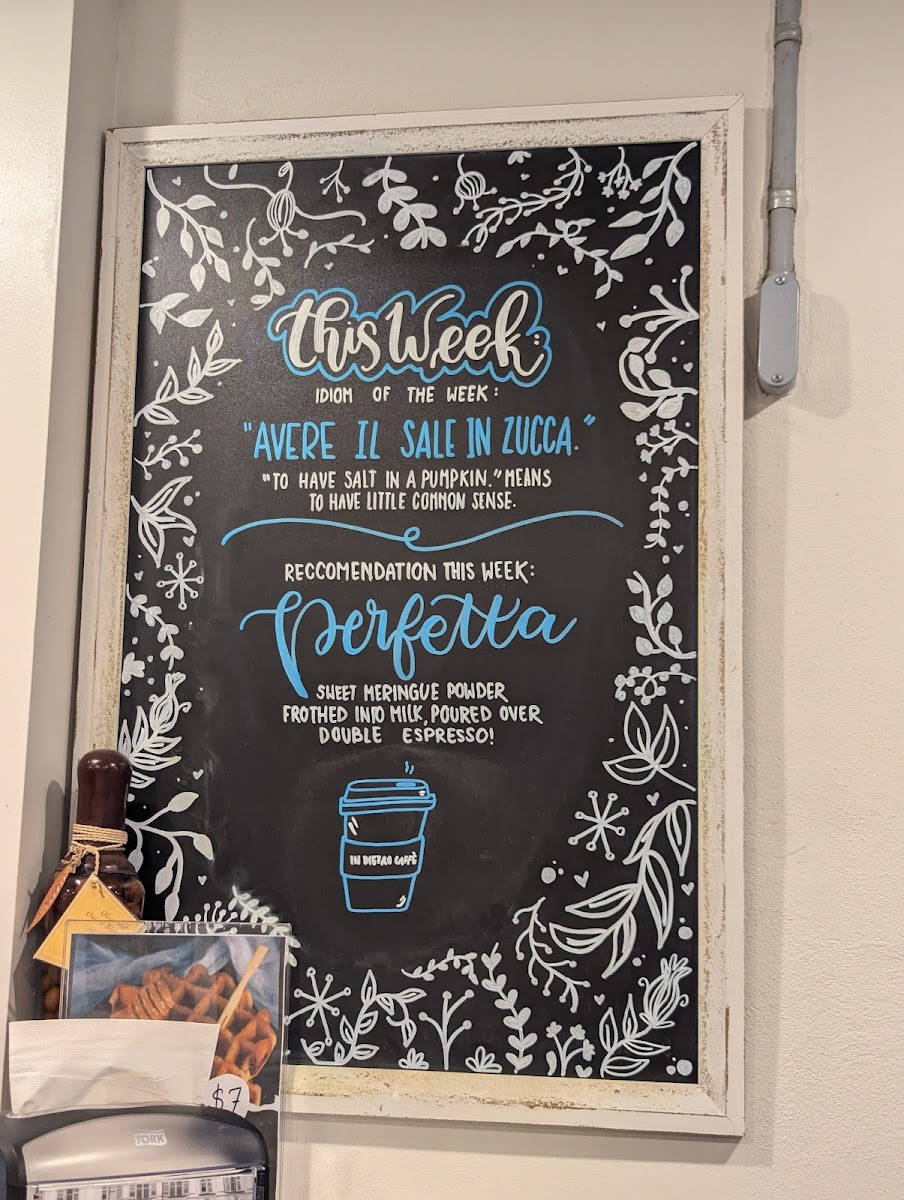 this Week:
IDIOM OF THE WEEK:
"AVERE IL SALE IN ZUCCA."
"TO HAVE SALT IN A PUMPKIN." MEANS
TO HAVE LITTLE COMMON SENSE.
RECCOMENDATION THIS WEEK:
Perfetta
SWEET MERINGUE POWDER
FROTHED INTO MILK, POURED OVER
DOUBLE ESPRESSO!
IN DIETRO CAFFÈ
$7
TORK